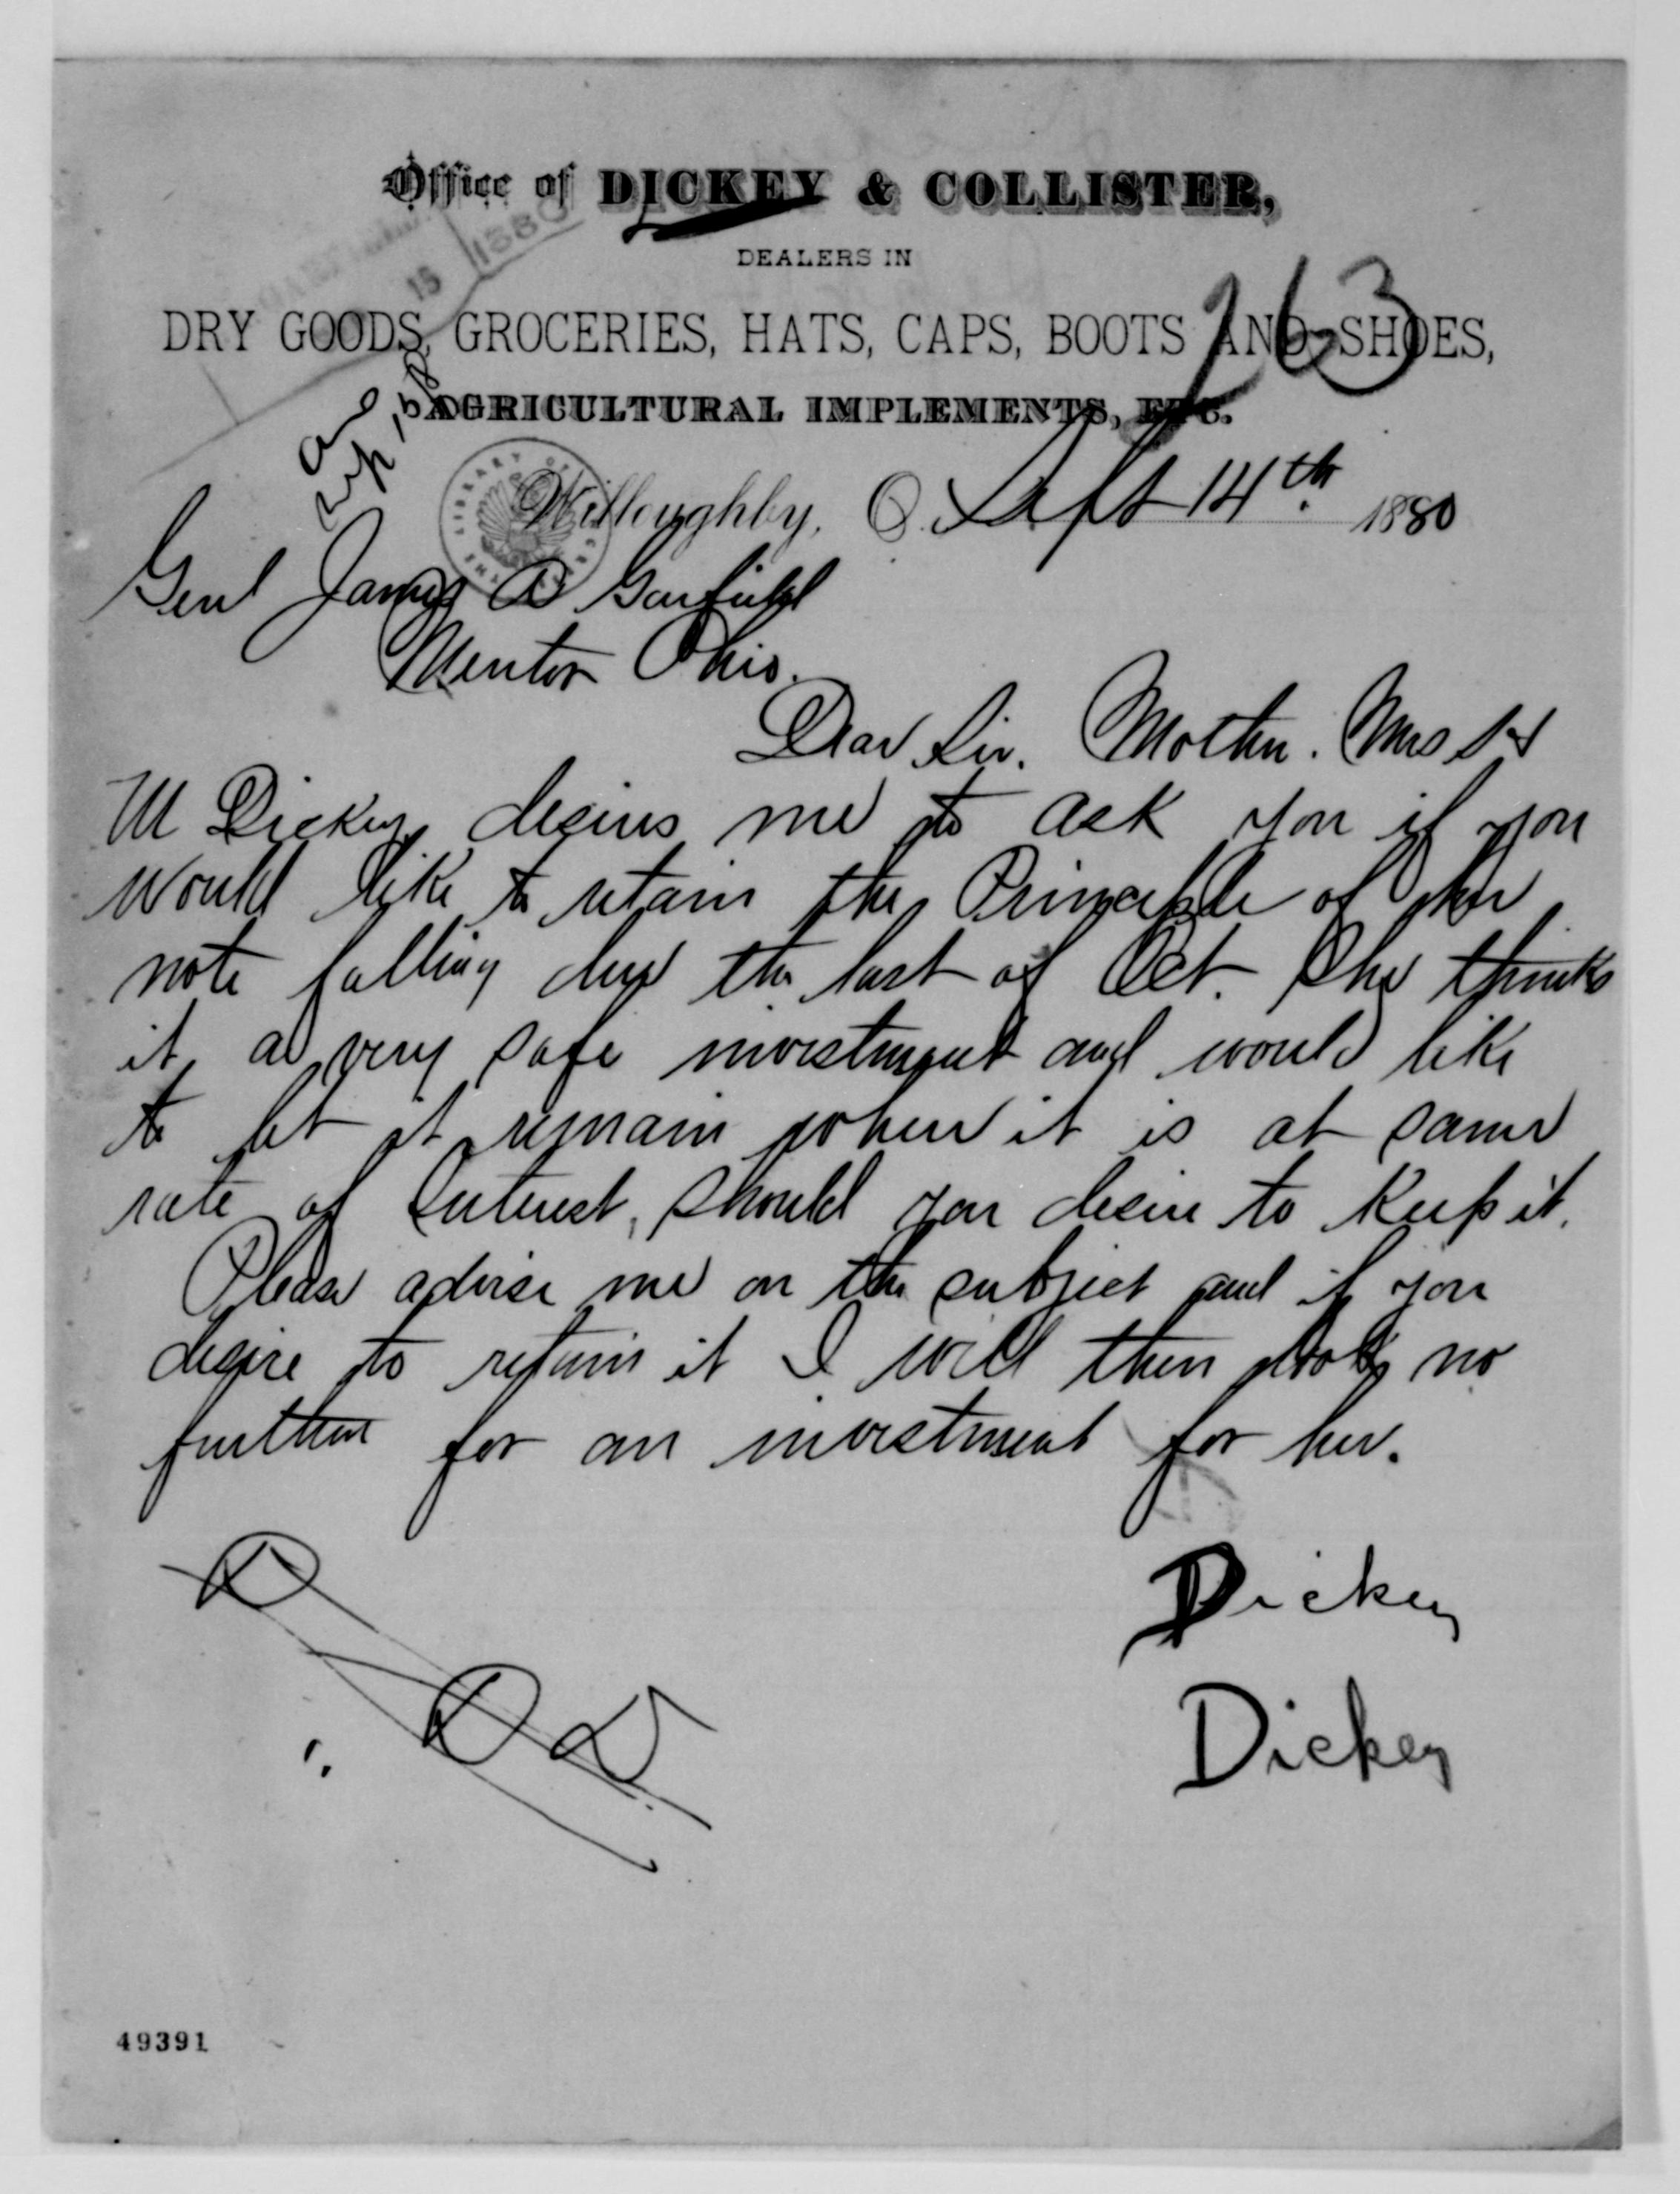 Office of DICKEY & COLLISTER,
DEALERS IN
DRY GOODS, GROCERIES, HATS, CAPS, BOOTS AND SHOES,
AGRICULTURAL IMPLEMENTS, ETC.
263
15 1880
Willoughby, O. Sept 14th 1880
Genl James A Garfield
Mentor Ohio.
Dear Sir. Mother. Mrs
M Dickey desires me to ask you if you
would like to retain the Principle of her
note falling due the last of Oct. She thinks
it a very safe investment and would like
to let it remain where it is at same
rate of Interest, should you desire to keep it.
Please advise me on the subject and if you
desire to retain it I will then look no
further for an investment for her.
Dickey
Dickey
49391